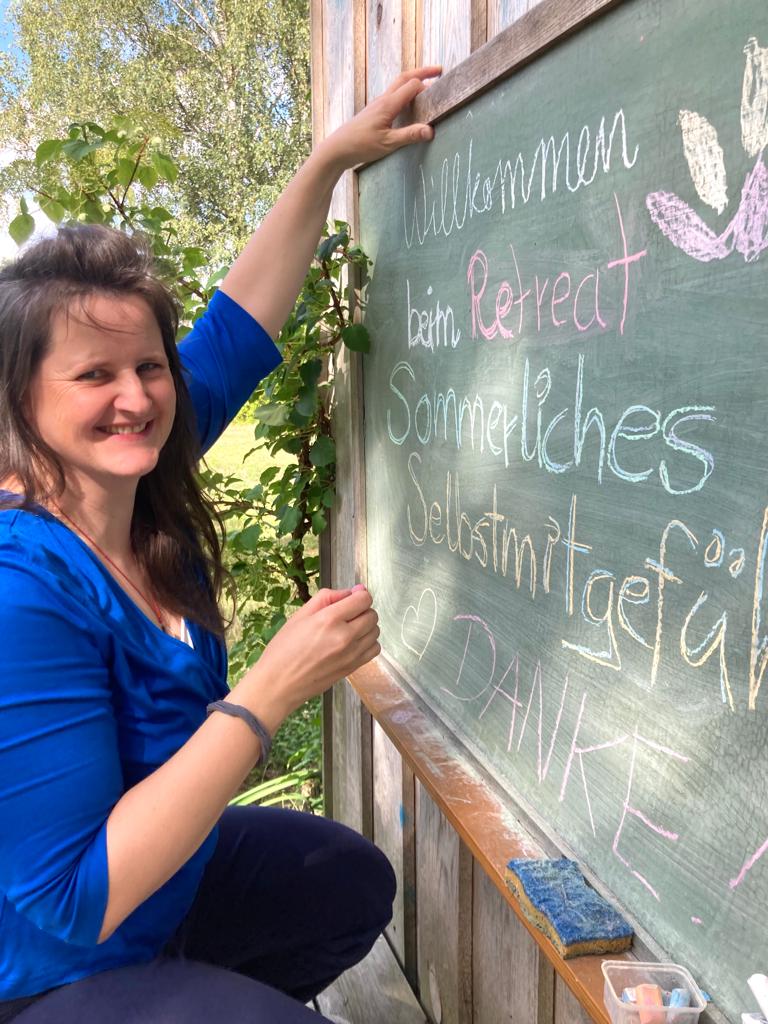 Willkommen
beim Retreat
Sommerliches
Selbstmitgefü
DANKE